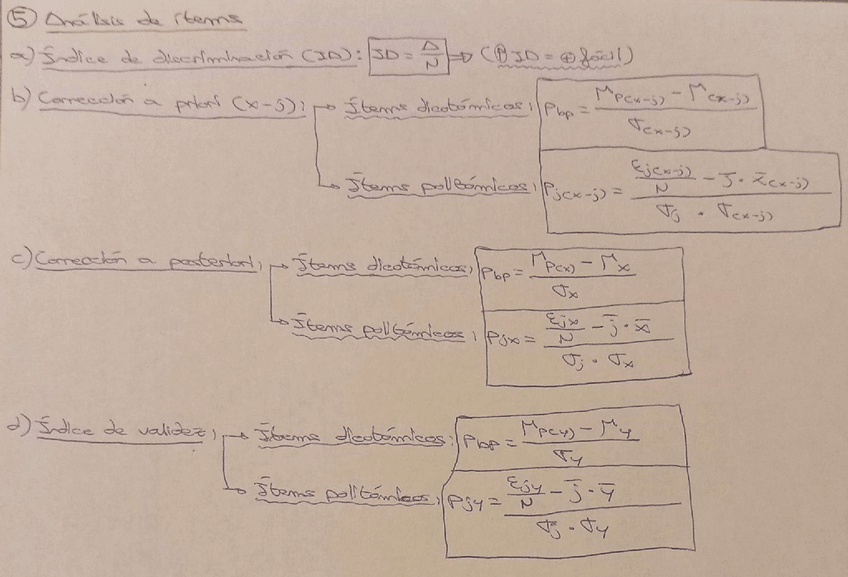 ⑤ Análisis de ítems
a) Índice de discriminación (ID): ID = A/N ⇒ (↑ ID = ⊕ fácil)
b) Corrección a priori (x-j): → Ítems dicotómicos: ρbp = (μp(x-j) - μ(x-j)) / σ(x-j)
→ Ítems politómicos: ρj(x-j) = (Σj(x-j)/N - j̄ · x̄(x-j)) / (σj · σ(x-j))
c) Corrección a posteriori: → Ítems dicotómicos: ρbp = (μp(x) - μx) / σx
→ Ítems politómicos: ρjx = (Σjx/N - j̄ · x̄) / (σj · σx)
d) Índice de validez: → Ítems dicotómicos: ρbp = (μp(y) - μy) / σy
→ Ítems politómicos: ρjy = (Σjy/N - j̄ · ȳ) / (σj · σy)